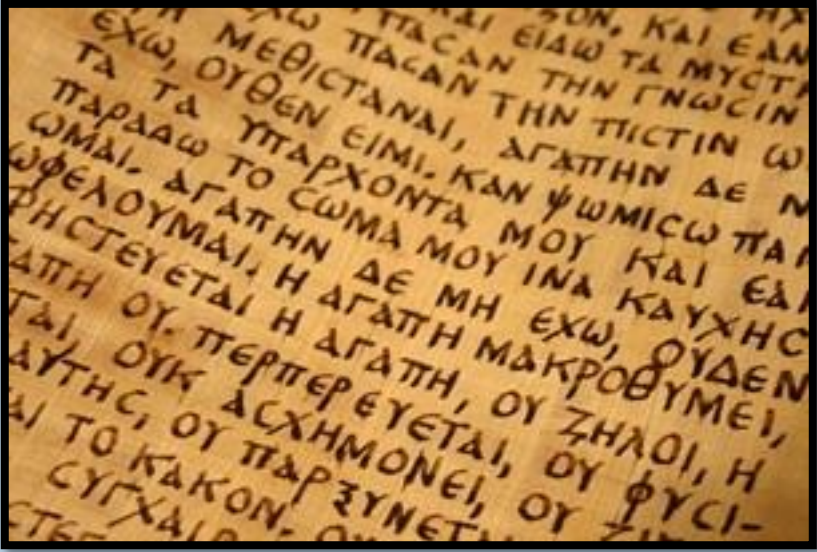 ϹΟΝ, ΚΑΙ ΕΑΝ
ΚΑΙ ΕΙΔΩ ΤΑ ΜΥϹΤ
ΠΑϹΑΝ ΤΗΝ ΓΝΩϹΙΝ
ΕΧΩ ΠΑϹΑΝ ΤΗΝ ΠΙϹΤΙΝ Ω
ΤΗ ΜΕΘΙϹΤΑΝΑΙ, ΑΓΑΠΗΝ ΔΕ Μ
ΕΧΩ, ΟΥΘΕΝ ΕΙΜΙ. ΚΑΝ ΨΩΜΙϹΩ ΠΑΝ
ΤΑ ΤΑ ΥΠΑΡΧΟΝΤΑ ΜΟΥ ΚΑΙ ΕΑΝ
ΠΑΡΑΔΩ ΤΟ ϹΩΜΑ ΜΟΥ ΙΝΑ ΚΑΥΧΗϹ
ΩΜΑΙ. ΑΓΑΠΗΝ ΔΕ ΜΗ ΕΧΩ, ΟΥΔΕΝ
ΩΦΕΛΟΥΜΑΙ. Η ΑΓΑΠΗ ΜΑΚΡΟΘΥΜΕΙ,
ΡΗϹΤΕΥΕΤΑΙ Η ΑΓΑΠΗ, ΟΥ ΖΗΛΟΙ, Η
ΑΠΗ ΟΥ. ΠΕΡΠΕΡΕΥΕΤΑΙ, ΟΥ ΦΥϹΙ-
ΤΑΙ, ΟΥΚ ΑϹΧΗΜΟΝΕΙ, ΟΥ ΖΗ
ΑΥΤΗϹ, ΟΥ ΠΑΡΞΥΝΕΤΑΙ
ΑΙ ΤΟ ΚΑΚΟΝ. ΟΥ
ϹΥΓΧΑΙΡ
ϹΤΕΓ